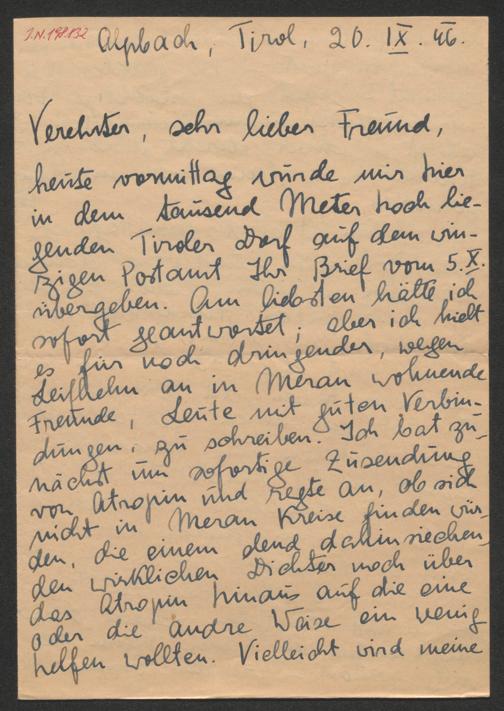 I.N. 198.132
Alpbach, Tirol, 20. IX. 46.
Verehrter, sehr lieber Freund,
heute vormittag wurde mir hier
in dem tausend Meter hoch lie-
genden Tiroler Dorf auf dem win-
zigen Postamt Ihr Brief vom 5. X.
übergeben. Am liebsten hätte ich
sofort geantwortet; aber ich hielt
es für noch dringender, wegen
Leifhelm an in Meran wohnende
Freunde, Leute mit guten Verbin-
dungen, zu schreiben. Ich bat zu-
nächst um sofortige Zusendung
von Atropin und regte an, ob sich
nicht in Meran Kreise finden wür-
den, die einem elend dahinsiechen-
den wirklichen Dichter noch über
das Atropin hinaus auf die eine
oder die andre Weise ein wenig
helfen wollten. Vielleicht wird meine